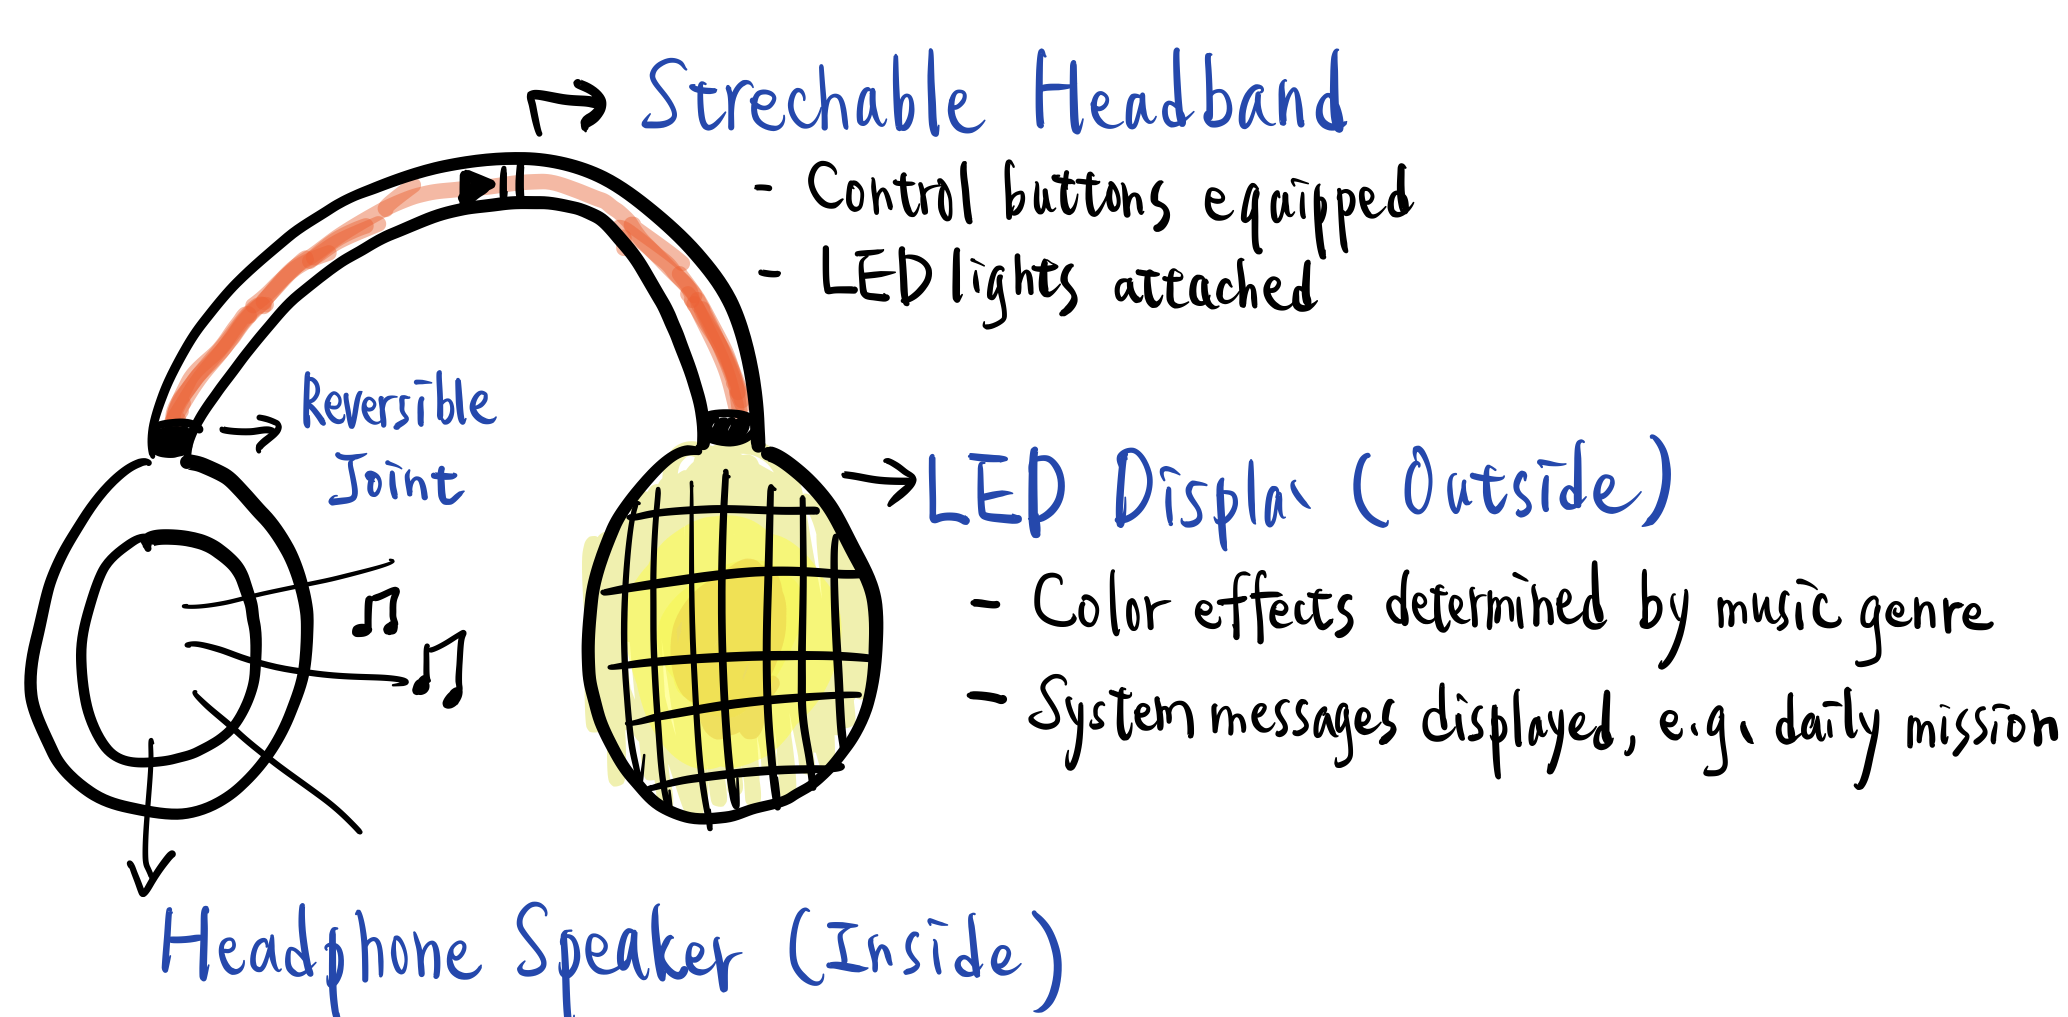 Strechable Headband
- Control buttons equipped
- LED lights attached
Reversible
Joint
LED Display (Outside)
- Color effects determined by music genre
- System messages displayed, e.g. daily mission
Headphone Speaker (Inside)